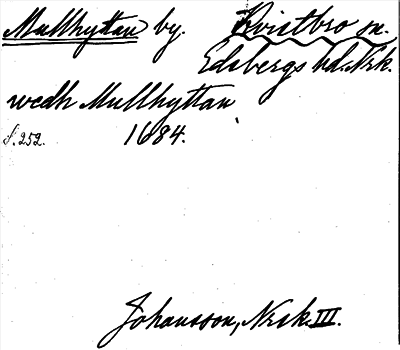 Mullhyttan by. Kvistbro sn.
Edsbergs hd. Nrk.
wedh Mullhyttan
s. 252. 1684.
Johansson, Nrsk. III.